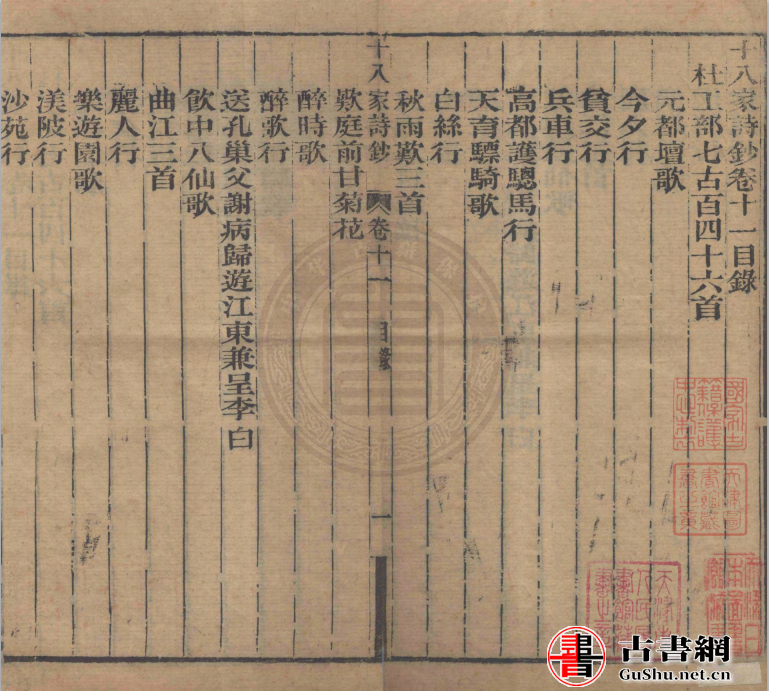 十八家詩鈔卷十一目錄
杜工部七古百四十六首
元都壇歌
今夕行
貧交行
兵車行
高都護驄馬行
天育驃騎歌
白絲行
秋雨歎三首
十八家詩鈔 卷十一 目錄 一
歎庭前甘菊花
醉時歌
醉歌行
送孔巢父謝病歸遊江東兼呈李白
飲中八仙歌
曲江三首
麗人行
樂遊園歌
渼陂行
沙苑行
古書網
GuShu.net.cn